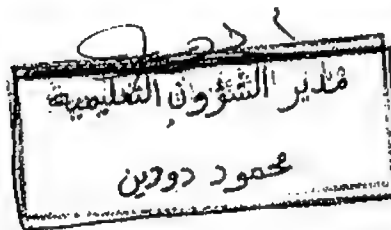 مدير الشؤون التعليمية
محمود دودين